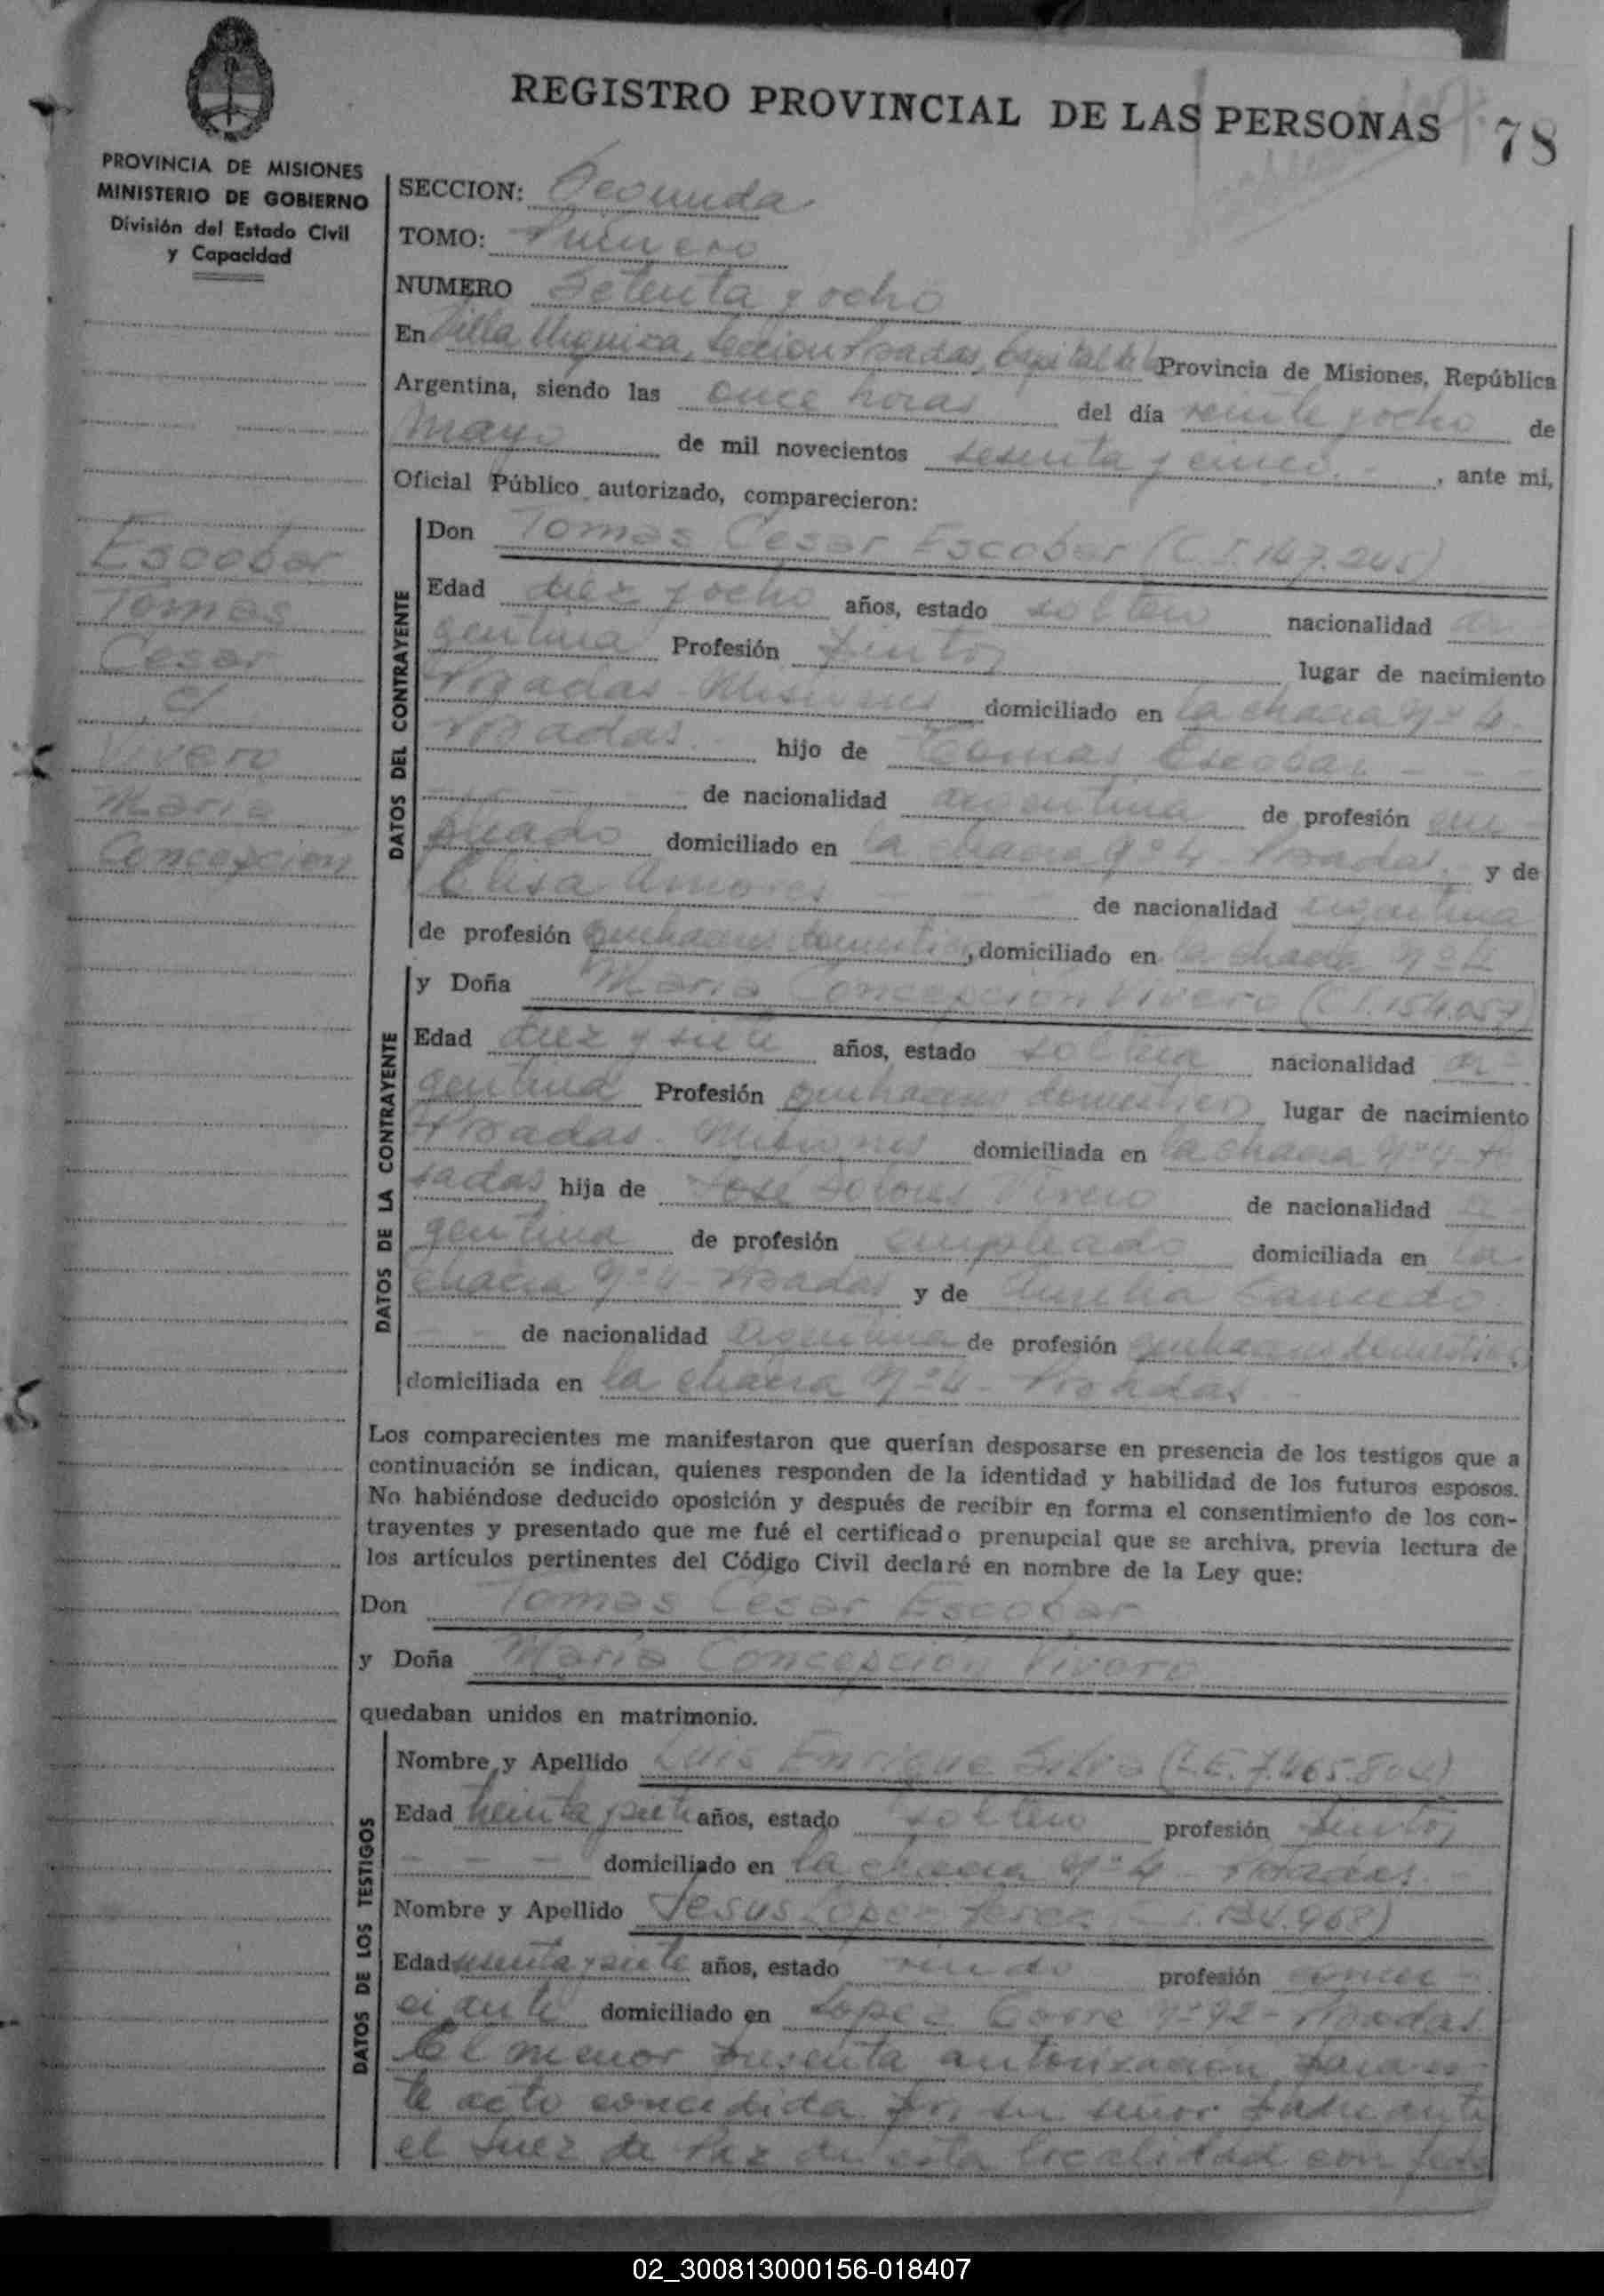 REGISTRO PROVINCIAL DE LAS PERSONAS 78
PROVINCIA DE MISIONES
MINISTERIO DE GOBIERNO
División del Estado Civil
y Capacidad
SECCION: Segunda
TOMO: Primero
NUMERO Setenta y ocho
En Villa Urquiza, Seccion Posadas, Capital de la Provincia de Misiones, República
Argentina, siendo las once horas del día veinte y ocho de
Mayo de mil novecientos sesenta y cinco.- , ante mi,
Oficial Público autorizado, comparecieron:
Escobar
Tomas
Cesar
c/
Vivero
Maria
Concepcion
DATOS DEL CONTRAYENTE
Don Tomas Cesar Escobar (C.I. 147.245)
Edad diez y ocho años, estado soltero nacionalidad ar
gentina Profesión pintor lugar de nacimiento
Posadas - Misiones domiciliado en la chacra Nº 4 -
Posadas.- hijo de Tomas Escobar - - -
- - - de nacionalidad argentina de profesión em-
pleado domiciliado en la chacra Nº 4 Posadas, y de
Elisa Amores - - - de nacionalidad argentina
de profesión quehaceres domesticos, domiciliado en la chacra Nº 4
DATOS DE LA CONTRAYENTE
y Doña Maria Concepcion Vivero (C.I. 154.057)
Edad diez y siete años, estado soltera nacionalidad ar-
gentina Profesión quehaceres domesticos lugar de nacimiento
Posadas - Misiones domiciliada en la chacra Nº 4 - Po
sadas hija de Jose Dolores Vivero de nacionalidad ar-
gentina de profesión empleado domiciliada en la
chacra Nº 4 - Posadas y de
- - de nacionalidad argentina de profesión quehaceres domesticos
domiciliada en la chacra Nº 4 - Posadas -
Los comparecientes me manifestaron que querían desposarse en presencia de los testigos que a
continuación se indican, quienes responden de la identidad y habilidad de los futuros esposos.
No habiéndose deducido oposición y después de recibir en forma el consentimiento de los con-
trayentes y presentado que me fué el certificado prenupcial que se archiva, previa lectura de
los artículos pertinentes del Código Civil declaré en nombre de la Ley que:
Don Tomas Cesar Escobar
y Doña Maria Concepcion Vivero
quedaban unidos en matrimonio.
DATOS DE LOS TESTIGOS
Nombre y Apellido Luis Enrique Silva (L.E. 7.465.804)
Edad treinta y siete años, estado soltero profesión pintor
- - - domiciliado en la chacra Nº 4 - Posadas.-
Nombre y Apellido Jesus Lopez Perez
Edad y siete años, estado viudo profesión comer-
ciante domiciliado en Lopez Torre Nº 92 - Posadas
El menor presenta autorizacion para es-
te acto concedida por su señor padre ante
el Juez de Paz de esta localidad con fecha
02_300813000156-018407